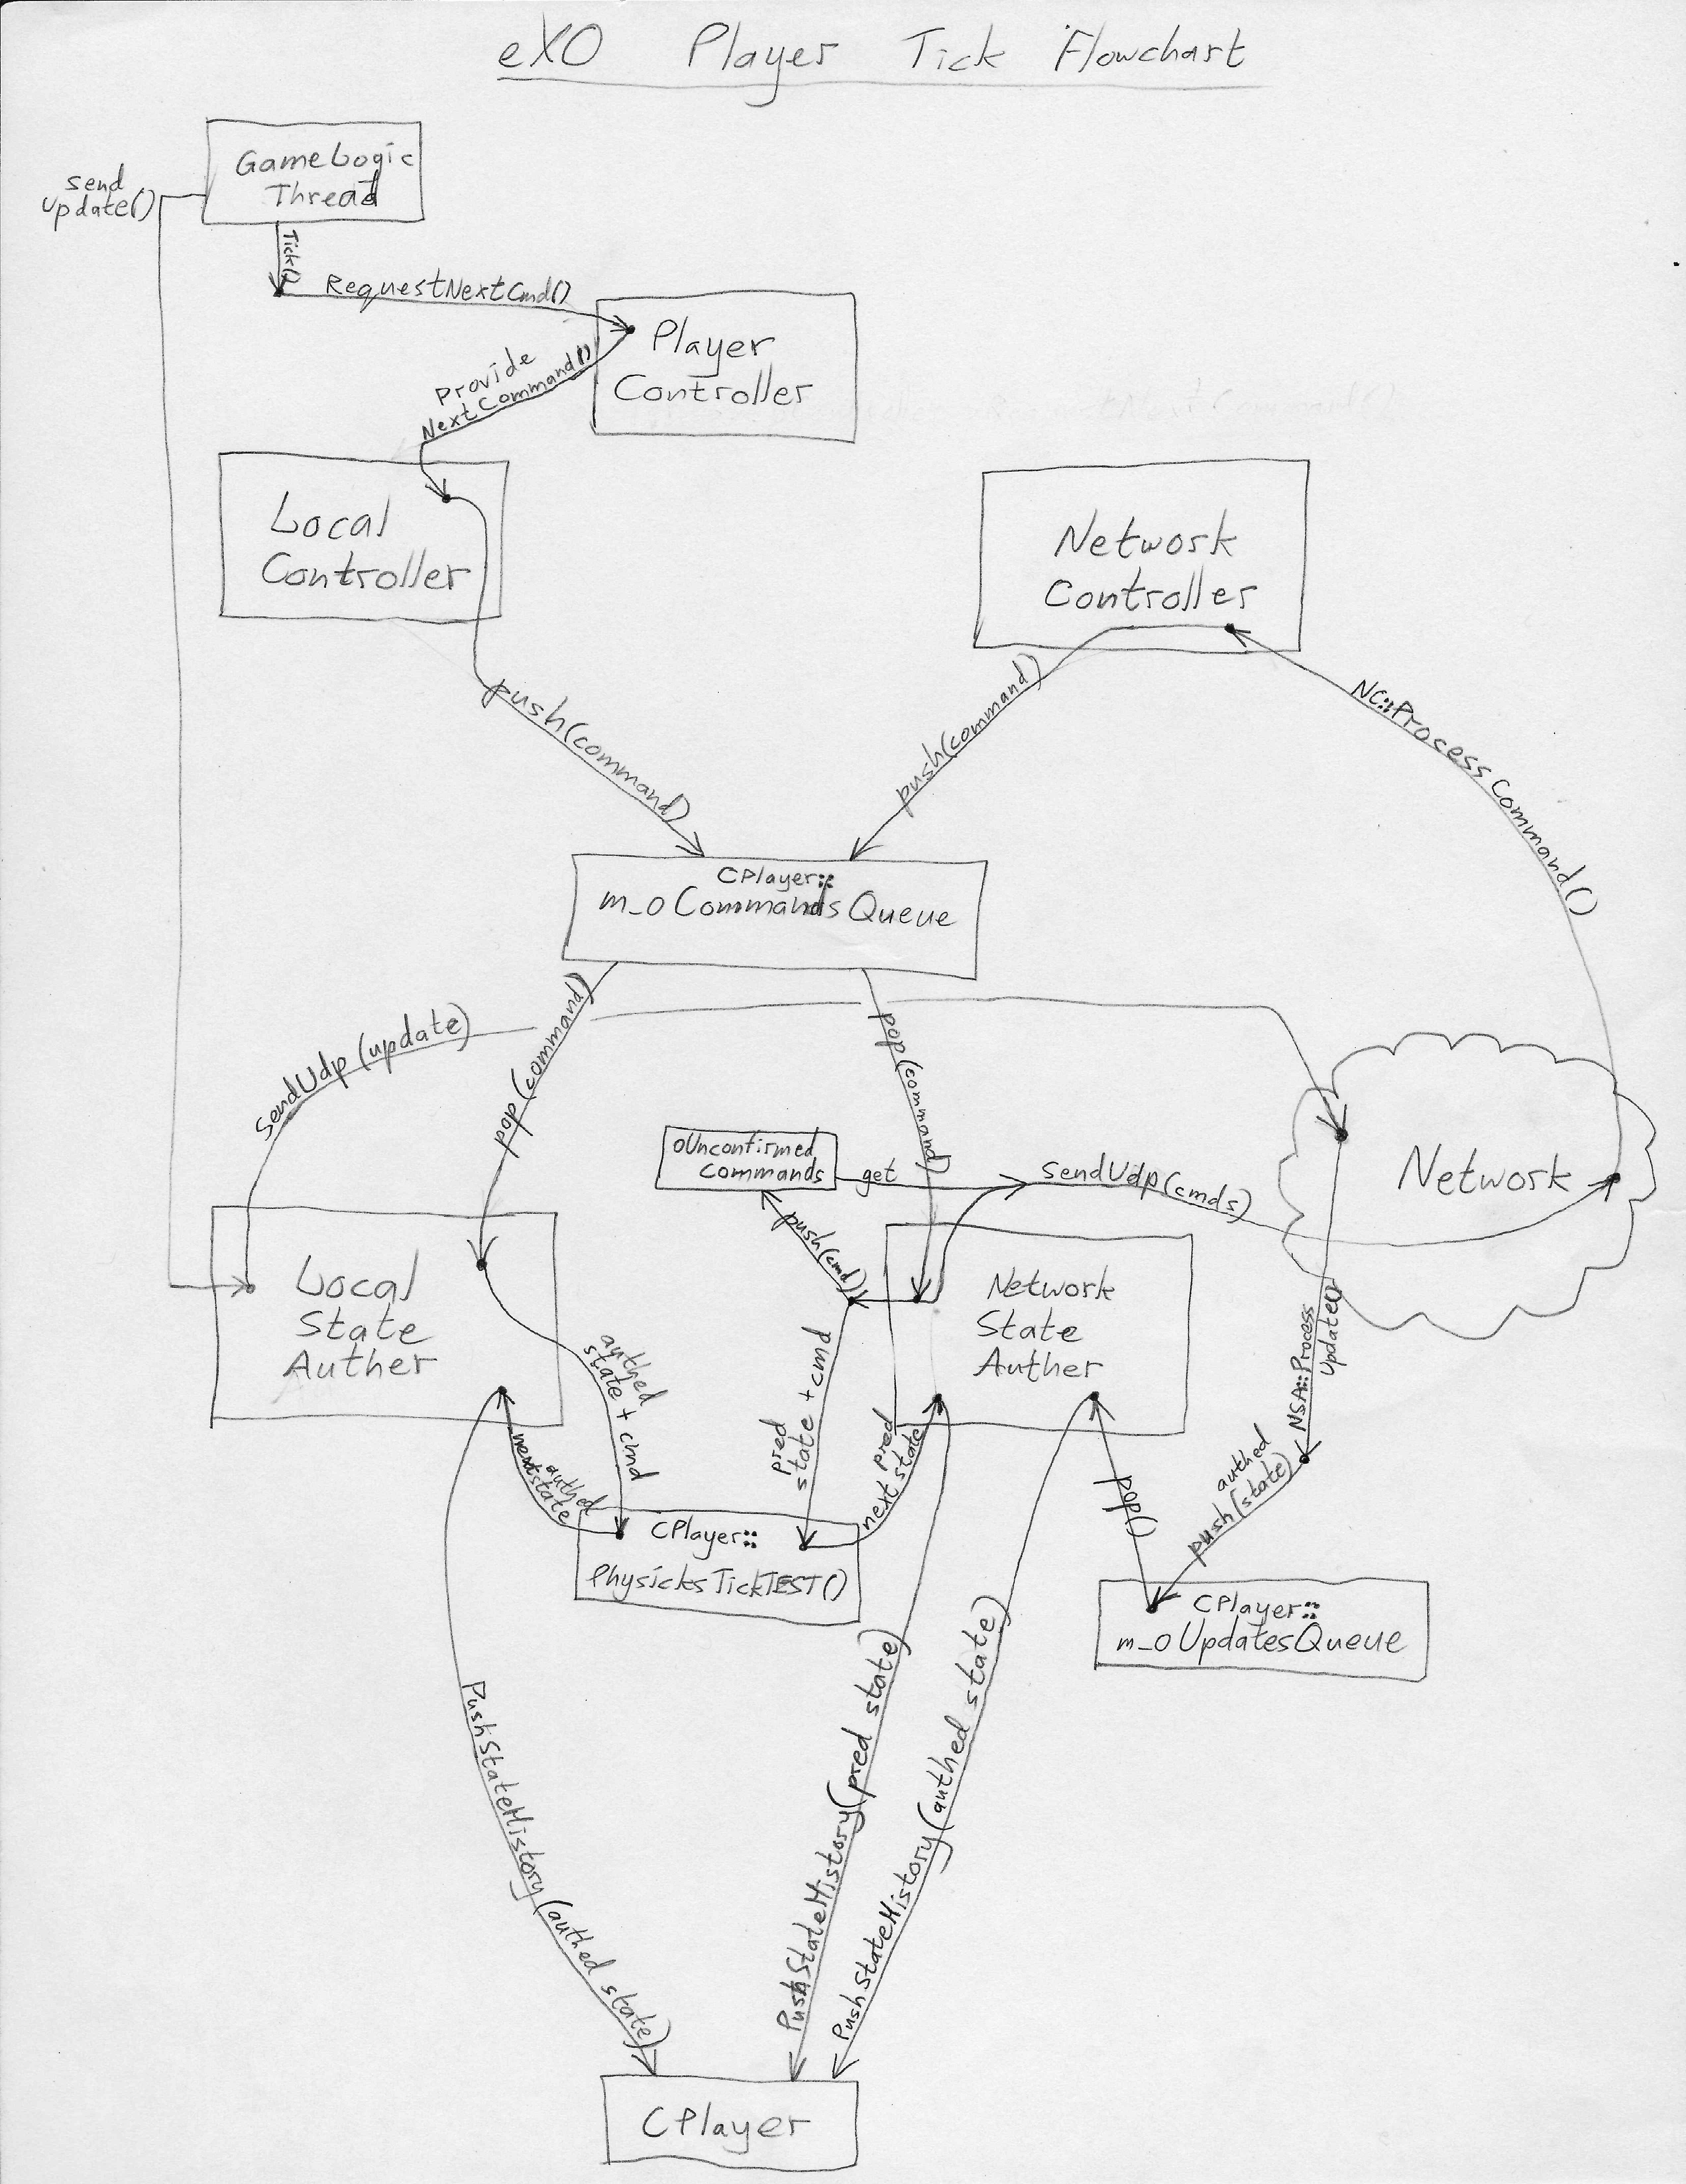 eXO Player Tick Flowchart
GameLogic
Thread
send
update()
Tick()
RequestNextCmd()
Player
Controller
Provide
NextCommand()
Local
Controller
Network
Controller
push(command)
push(command)
NC::Process Command()
CPlayer::
m_oCommandsQueue
pop(command)
pop(command)
sendUdp(update)
oUnconfirmed
commands
get
sendUdp(cmds)
Network
push(cmd)
Local
State
Auther
Network
State
Auther
authed
state + cmd
authed
next state
authed
pred
state + cmd
pred
next state
NSA::Process
Update()
authed
push(state)
pop()
CPlayer::
PhysicksTickTEST()
CPlayer::
m_oUpdatesQueue
PushStateHistory(authed state)
PushStateHistory(pred state)
PushStateHistory(authed state)
CPlayer